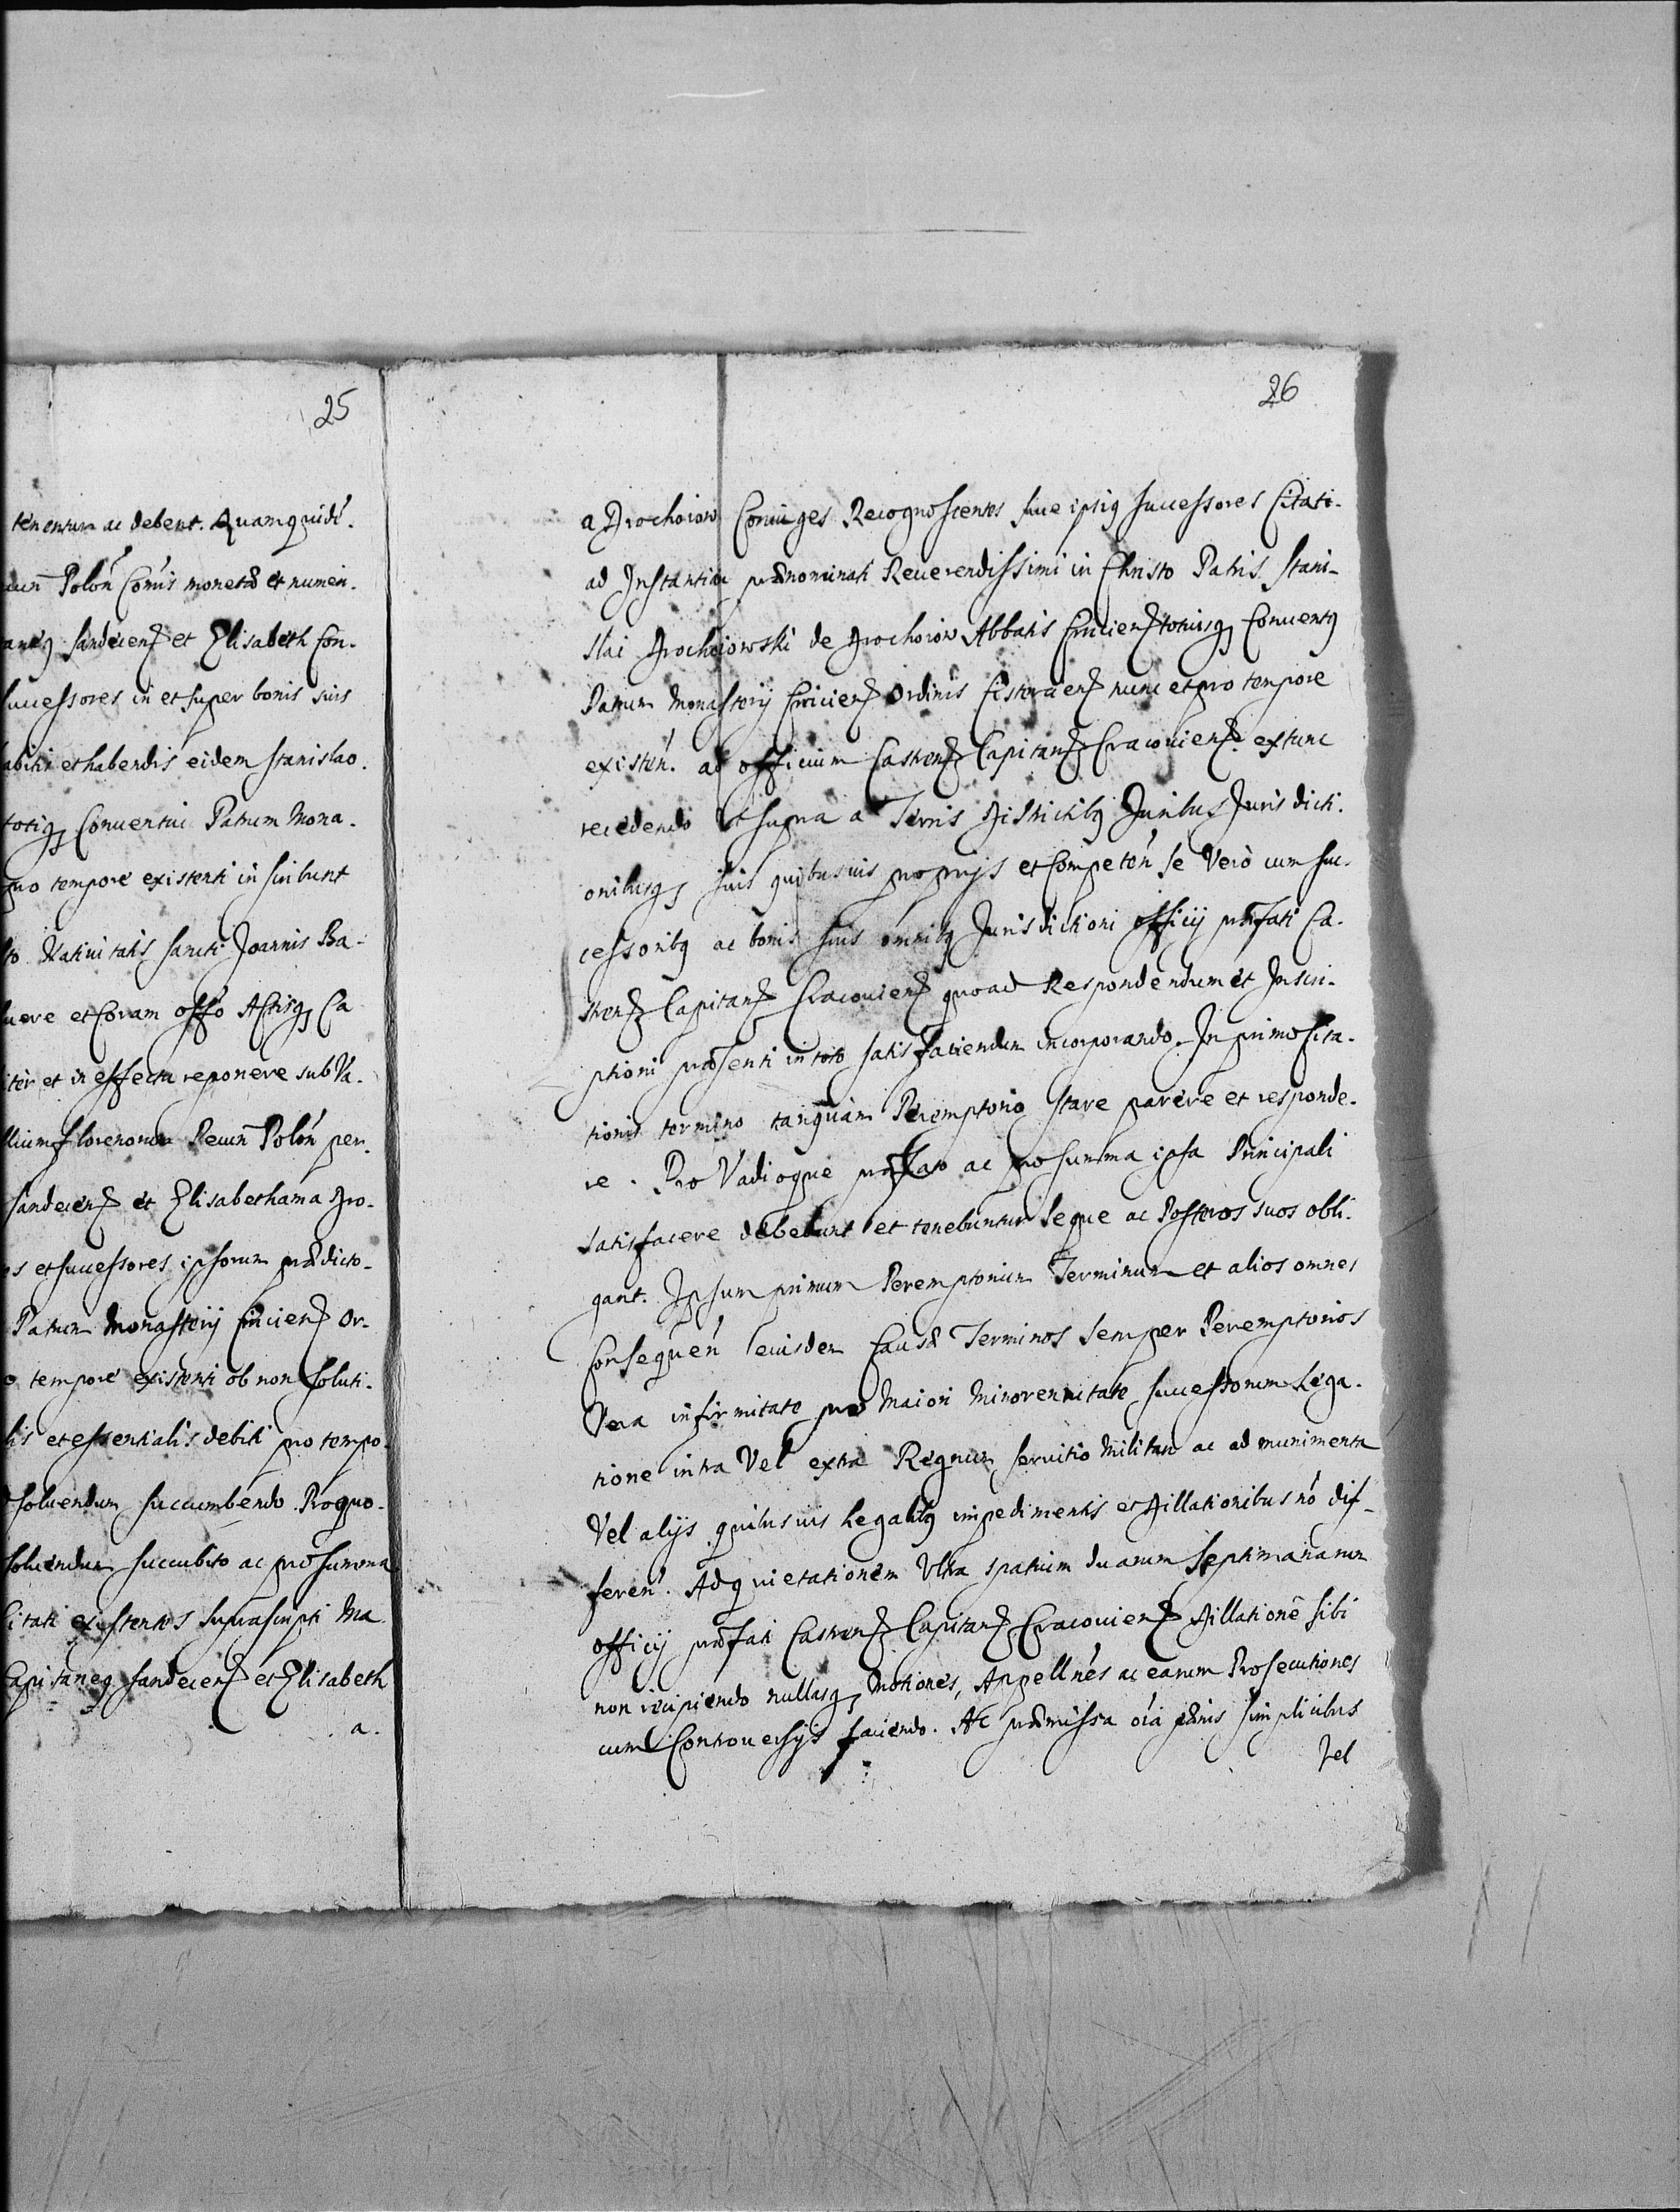 25
tenentur ac debent. Quamquidē.
cun̄ Polon̄ Cōmis moneta et numeri.
aneq Sandecen̄ et Elisabeth Con.
successores in et super bonis suis
abitis et habendis eidem Stanislao.
totiq Conuentui Patrum Mona.
pro tempore existenti inscribunt
sto Natiuitatis Sancti Joannis Ba-
luere et Coram offō Actisq Ca
iter et in effectu reponere sub Va.
llium florenorum Pecun̄ Polon̄ per.
Sandecen̄ et Elisabetham a Dro.
es et successores ipsorum prædicto-
Patrum Monastery Ciricien̄ Or.
o tempore existenti ob non soluti.
lis et essentialis debiti pro tempo.
soluendum succumbendo. Proquo.
soluendum succubito ac pro summa
Citati existentes suprascripti Ma.
Capitaneq Sandecen̄ et Elisabeth
a.
26
a Drochoiow Coniuges Recognoscentes siue ipsiq successores Citati.
ad Instantia prænominati Reuerendissimi in Christo Patris Stani-
slai Drochoiowski de Drochoiow Abbatis Ciricien̄ totiusq Conuentq
Patrum Monastery Ciricien̄ Ordinis Cistercien̄ nunc et pro tempore
existen̄. ad officium Castren̄ Capitan̄ Cracouien̄. extunc
recedendo ut supra a Terris Districtibq Juribus Jurisdicti.
onibusq suis quibusuis proprys et Competen̄ Se Vero cum suc.
cessoribq ac bonis suis omnibq Jurisdictioni officij præfati Ca.
stren̄ Capitan̄ Cracouien̄ quoad Respondendum et Inscri.
ptioni præsenti in toto satisfaciendum incorporando. In primo Cita.
tionis termino tanquam Peremptorio stare parere et responde.
re. Pro Vadioque præfato ac pro summa ipsa Principali
satisfacere debebunt et tenebuntur seque ac Posteros suos obli.
gant. Ipsum primum Peremptorium Terminum et alios omnes
Consequen̄ eiusdem Causæ Terminos semper Peremptorios
Vera infirmitate pro Maiori Minorennitate successorum Lega.
tione intra Vel extra Regnum seruitio Militari ac ad munimenta
Vel alijs quibusuis Legalibq impedimentis et Dillationibus nō dif-
feren̄. Adquietationem Vltra spatium duarum Septimanarum
officij præfati Castren̄ Capitan̄ Cracouien̄ Dillationē sibi
non recipiendo nullasq Motiones, Appellnēs ac earum Prosecutiones
cum Controuersijs faciendo. Ac præmissa oīa simplicibus
Vel